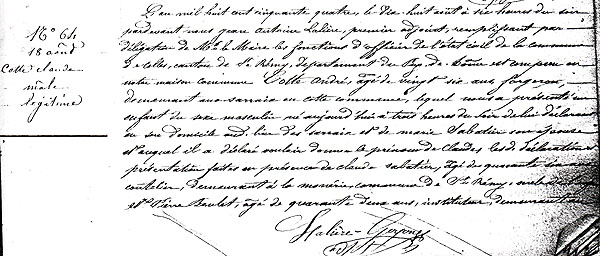 N° 64
18 août
Cotte claude
mâle
légitime
L'an mil huit cent cinquante quatre, le dix huit août à six heures du soir
pardevant nous jean Antoine Lalière, premier adjoint, remplissant par
délégation de Mr le Maire les fonctions d'officier de l'état civil de la commune
de Celles, canton de St Rémy, département du Puy de Dôme est comparu en
notre maison commune Cotte André, agé de vingt six ans, forgeron
demeurant aux sarraix en cette commune, lequel nous a présenté un
enfant de sexe masculin né aujourd'hui à trois heures du soir de lui déclarant
en son domicile audit lieu des sarraix et de marie Sabatier son épouse
et auquel il a déclaré vouloir donner le prénom de Claude les dites déclaration et
présentation faites en présence de claude sabatier, agé de quarante
coutelier, demeurant à la monerie commune de St Rémy, oncle
et de Pierre agé de quarante deux ans, instituteur, demeurant
Lalière